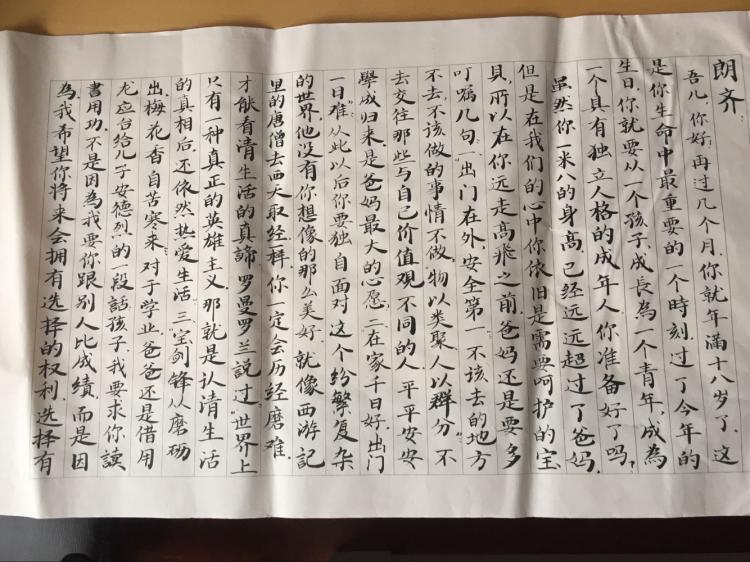 朗齐
吾儿,你好,再过几个月,你就年满十八岁了,这
是你生命中最重要的一个時刻,过了今年的
生日,你就要从一个孩子,成長為一个青年,成為
一个具有独立人格的成年人,你准备好了吗?
虽然你一米八的身高,已经远远超过了爸妈,
但是在我们的心中你依旧是需要呵护的宝
貝,所以在你远走高飛之前爸妈还是要多
叮嘱几句,一出门在外,安全第一,不该去的地方
不去不该做的事情不做,物以类聚人以群分,不
去交往那些与自己价值观不同的人,平平安安
學成归来,是爸妈最大的心愿,二在家千日好,出门
一日难,从此以后你要独自面对这个纷繁复杂
的世界,他没有你想像的那么美好,就像西游記
里的唐僧去西天取经一样,你一定会历经磨难,
才能看清生活的真諦,罗曼罗兰説过"世界上
只有一种真正的英雄主义,那就是认清生活
的真相后,还依然热爱生活,三宝剑锋从磨砺
出,梅花香自苦寒来,对于学业,爸爸还是借用
龙应台给儿子安德烈的一段話,孩子,我要求你讀
書用功,不是因為我要你跟別人比成績,而是因
為,我希望你将来会拥有选择的权利,选择有